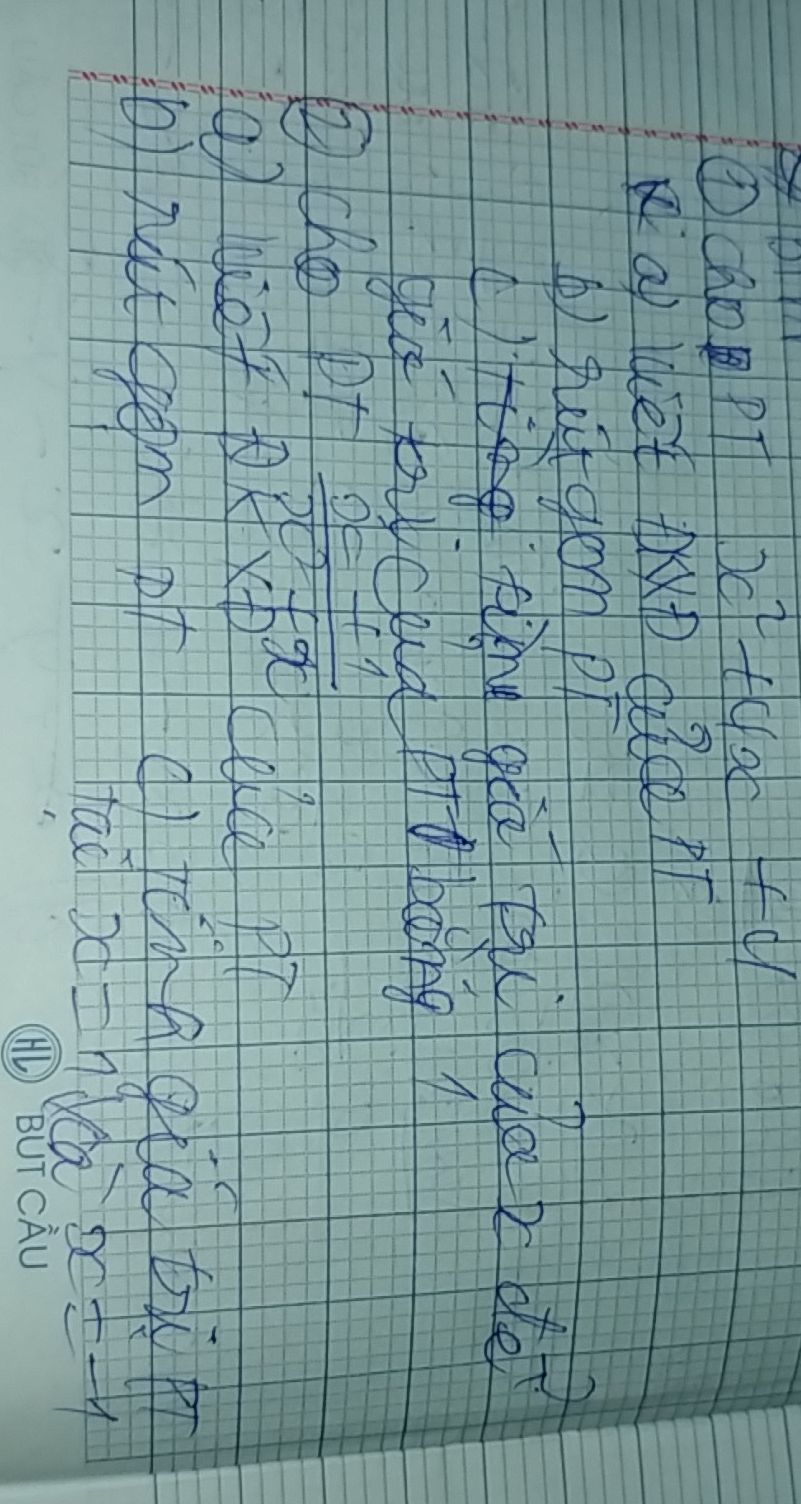 ① Cho PT x² + 4x + 4
a) Viết ĐKXĐ của PT
b) rút gọn PT
c) tìm giá trị của x để
giá trị của PT bằng 1
② Cho PT x² + x / x + 1
a) Viết ĐKXĐ của PT
b) rút gọn PT c) Tính giá trị PT
tại x = 1 và x = -1
HL BÚT CẦU